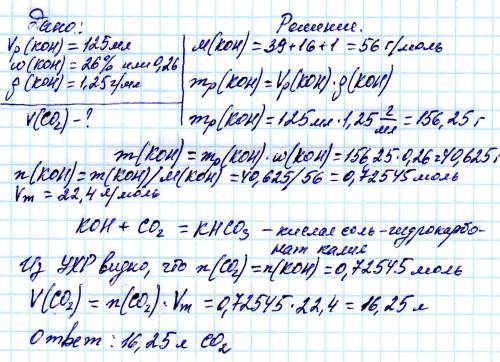 Дано:
Vр(KOH) = 125 мл
w(KOH) = 26% или 0,26
ρ(KOH) = 1,25 г/мл
V(CO₂) - ?
Решение.
M(KOH) = 39 + 16 + 1 = 56 г/моль
mр(KOH) = Vр(KOH) · ρ(KOH)
mр(KOH) = 125 мл · 1,25 г/мл = 156,25 г
m(KOH) = mр(KOH) · w(KOH) = 156,25 · 0,26 = 40,625 г
n(KOH) = m(KOH)/M(KOH) = 40,625/56 = 0,72545 моль
Vm = 22,4 л/моль
KOH + CO₂ = KHCO₃ – кислая соль – гидрокарбо-
нат калия
Из УХР видно, что n(CO₂) = n(KOH) = 0,72545 моль
V(CO₂) = n(CO₂) · Vm = 0,72545 · 22,4 = 16,25 л
Ответ: 16,25 л CO₂